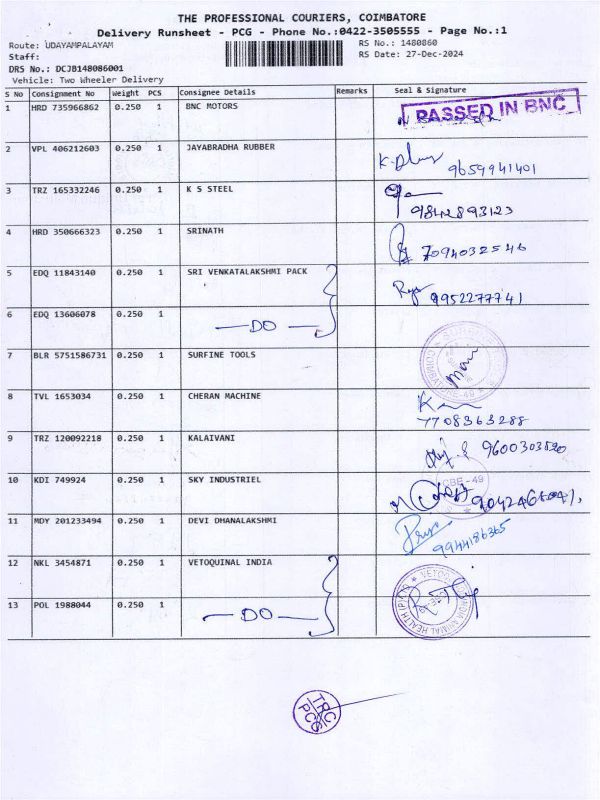 THE PROFESSIONAL COURIERS, COIMBATORE
Delivery Runsheet - PCG - Phone No.:0422-3505555 - Page No.:1
Route: UDAYAMPALAYAM RS No.: 1480860
Staff: RS Date: 27-Dec-2024
DRS No.: DCJB148086001
Vehicle: Two Wheeler Delivery
S No Consignment No Weight PCS Consignee Details Remarks Seal & Signature
1 HRD 735966862 0.250 1 BNC MOTORS PASSED IN BNC
2 VPL 406212603 0.250 1 JAYABRADHA RUBBER 9659941401
3 TRZ 165332246 0.250 1 K S STEEL 9842893123
4 HRD 350666323 0.250 1 SRINATH 7094032546
5 EDQ 11843140 0.250 1 SRI VENKATALAKSHMI PACK 9952277741
6 EDQ 13606078 0.250 1 — DO —
7 BLR 5751586731 0.250 1 SURFINE TOOLS
8 TVL 1653034 0.250 1 CHERAN MACHINE 7708363288
9 TRZ 120092218 0.250 1 KALAIVANI 9600303820
10 KDI 749924 0.250 1 SKY INDUSTRIEL CBE-49
11 MDY 201233494 0.250 1 DEVI DHANALAKSHMI Priya 9944186365
12 NKL 3454871 0.250 1 VETOQUINAL INDIA
13 POL 1988044 0.250 1 — DO —
TRC
PCG